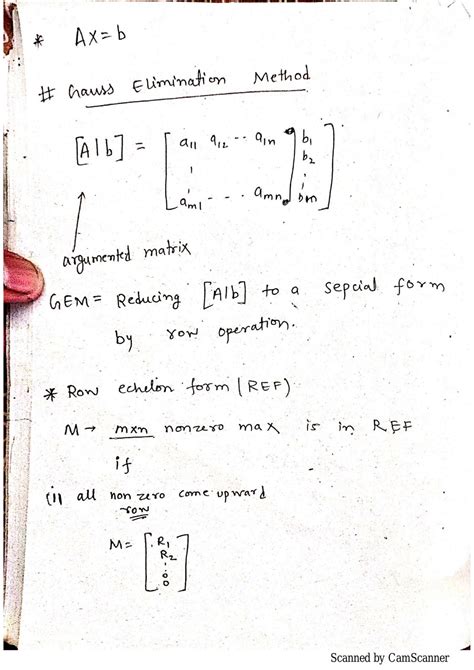 * Ax=b
# Gauss Elimination Method
[A|b] = [ a11 a12 -- a1n | b1
b2
am1 - - - amn | bm ]
argumented matrix
GEM = Reducing [A|b] to a sepcial form
by row operation.
* Row echelon form (REF)
M → mxn nonzero max is in REF
if
(i) all non zero come upward
row
M = [ R1
R2
:
0
0 ]
Scanned by CamScanner